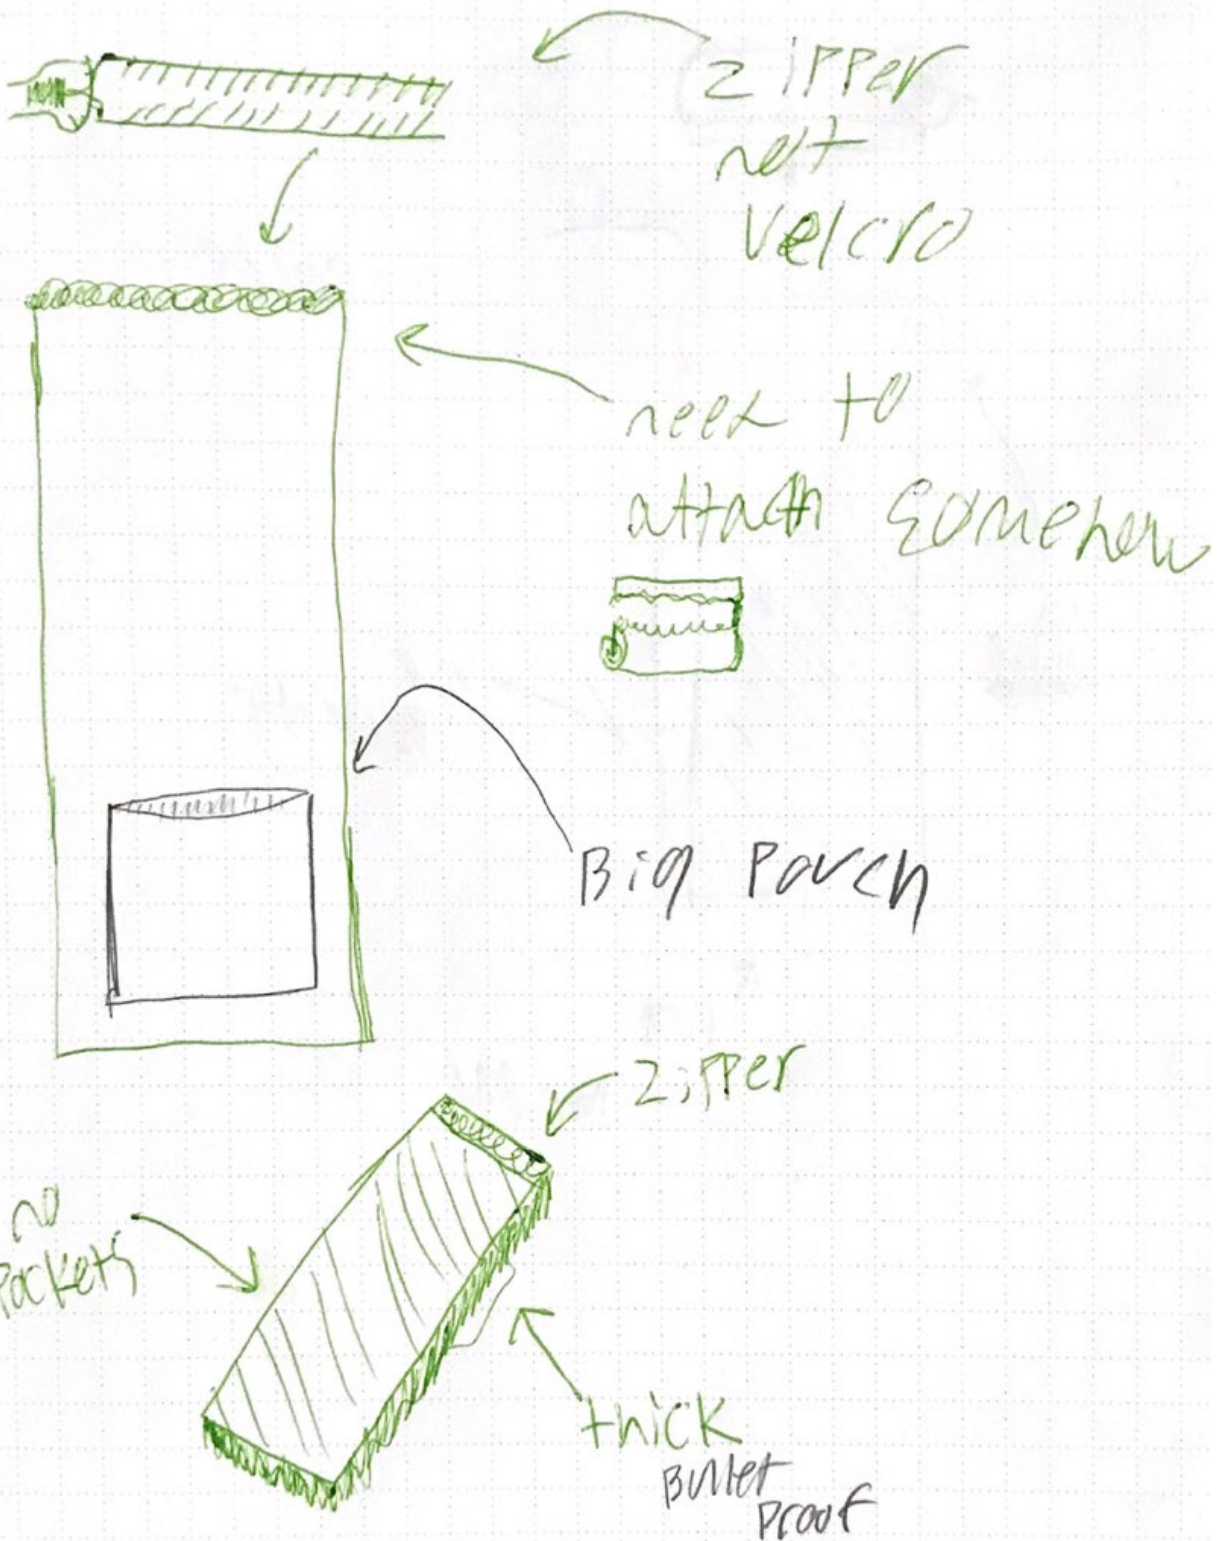 zipper
not
velcro
need to
attach somehow
Big Pouch
zipper
no
pockets
thick
Bullet
Proof